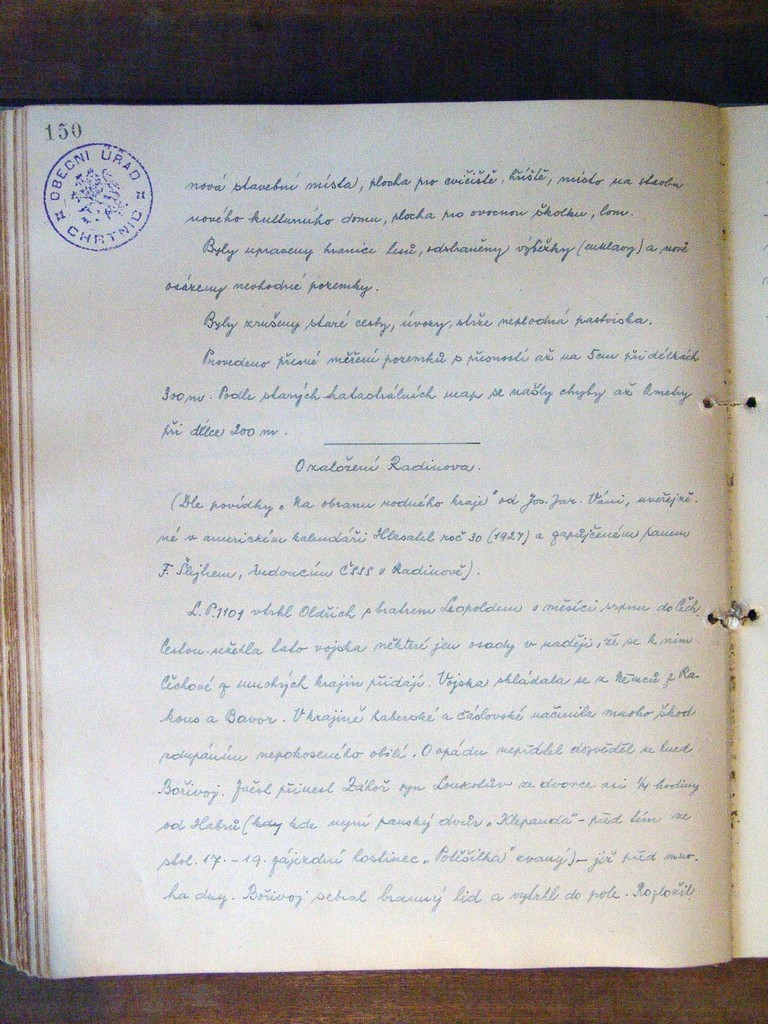 150
OBECNÍ ÚŘAD
CHRTNIC
nová stavební místa, plocha pro cvičiště, hřiště, místo na stavbu
nového kulturního domu, plocha pro ovocnou školku, lom.
Byly upraveny hranice lesů, odstraněny výběžky (enklavy) a nově
osázeny nevhodné pozemky.
Byly zrušeny staré cesty, úvozy, strže neplodná pastviska.
Provedeno přesné měření pozemků s přesností až na 5cm při délkách
300 m. Podle starých katastrálních map se našly chyby až 2 metry
při délce 200 m.
O založení Radinova.
(Dle povídky „Na obranu rodného kraje" od Jos. Jar. Váni, uveřejně-
né v americkém kalendáři Hlasatel roč 30 (1927) a zapůjčeném panem
F. Šlejhrem, vedoucím ČSSS v Radinově).
L. P. 1101 vtrhl Oldřich s bratrem Leopoldem v měsíci srpnu do Čech.
Cestou sežehla tato vojska některé jen osady v naději, že se k nim
Čechové z mnohých krajin přidají. Vojska skládala se z Němců z Ra-
kous a Bavor. V krajině haberské a čáslavské načinila mnoho škod
zdupáním nepokoseného obilí. O vpádu nepřátel dozvěděl se hned
Bořivoj. Zvěst přinesl Záhoř syn Loukotův ze dvorce asi 1/4 hodiny
od Habrů (kdy kde nyní panský dvůr „Klepanda" - před tím ve
stol. 17. - 19. zájezdní hostinec „Potěšilka" zvaný) - již před mno-
ha dny. Bořivoj sebral branný lid a vytrhl do pole. Rozložil